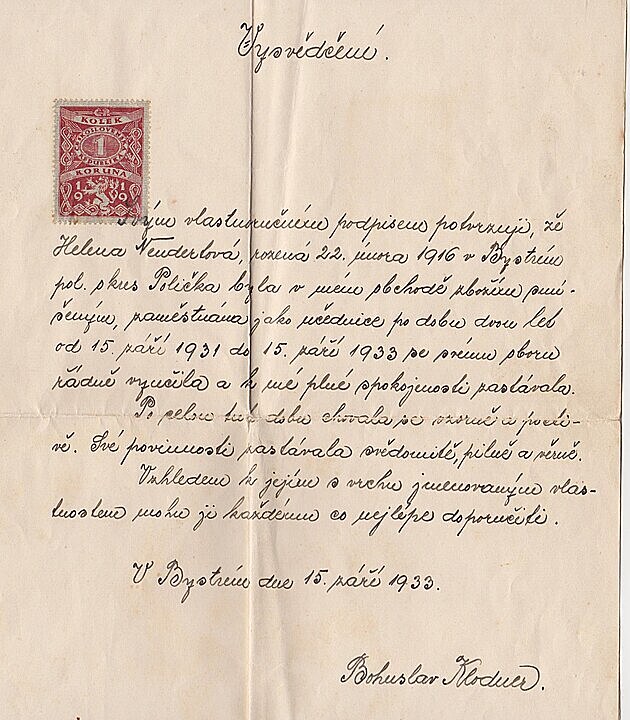 Vysvědčení.
KOLEK
ČESKOSLOVENSKÁ
1
REPUBLIKA
KORUNA
1919
Svým vlastnoručním podpisem potvrzuji, že
Helena Neudertová, rozená 22. února 1916 v Bystrém
pol. okres Polička byla v mém obchodě zbožím smí-
šeným, zaměstnána jako učednice po dobu dvou let
od 15. září 1931 do 15. září 1933 se svému oboru
řádně vyučila a k mé plné spokojnosti zastávala.
Po celou tuto dobu chovala se vzorně a pocti-
vě. Své povinnosti zastávala svědomitě, pilně a věrně.
Vzhledem k jejím s vrchu jmenovaným vlas-
tnostem mohu ji každému co nejlépe doporučiti.
V Bystrém dne 15. září 1933.
Bohuslav Klodner.